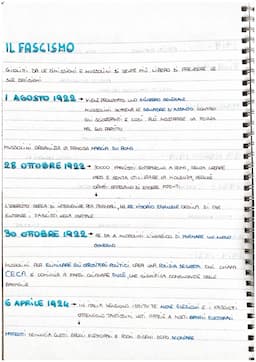 IL FASCISMO
GIOLITTI DÀ LE DIMISSIONI E MUSSOLINI SI SENTE PIÙ LIBERO DI PRENDERE LE
SUE DECISIONI
1 AGOSTO 1922 → VIENE PROCLAMATO UNO SCIOPERO GENERALE
MUSSOLINI SCATENA LE SQUADRE D'ASSALTO CONTRO
GLI SCIOPERANTI E COSÌ PUÒ MOSTRARE LA FORZA
DEL SUO PARTITO
MUSSOLINI ORGANIZZA LA FAMOSA MARCIA SU ROMA
28 OTTOBRE 1922 → FASCISTI ENTRARONO A ROMA, SENZA CREARE
E SENZA UTILIZZARE LA VIOLENZA, PERCHÉ
POTENTI
L'ESERCITO CERCA DI INTERVENIRE PER FERMARLI, MA RE VITTORIO EMANUELE ORDINA DI FAR
ENTRARE I FASCISTI NELLA CAPITALE
30 OTTOBRE 1922 → RE DÀ A MUSSOLINI L'INCARICO DI FORMARE UN NUOVO
GOVERNO
MUSSOLINI PER ELIMINARE GLI OPPOSITORI POLITICI CREA UNA POLIZIA SEGRETA CHE CHIAMA
CECA E COMINCIA A FARSI CHIAMARE DUCE, CHE SIGNIFICA COMANDANTE DELLE
6 APRILE 1924 → IN ITALIA VENGONO ISTITUITE NUOVE ELEZIONI E I FASCISTI
OTTENGONO TANTISSIMI VOTI, GRAZIE A MOLTI BROGLI ELETTORALI
MATTEOTTI DENUNCIA QUESTI BROGLI ELETTORALI E POCHI GIORNI DOPO SCOMPARE